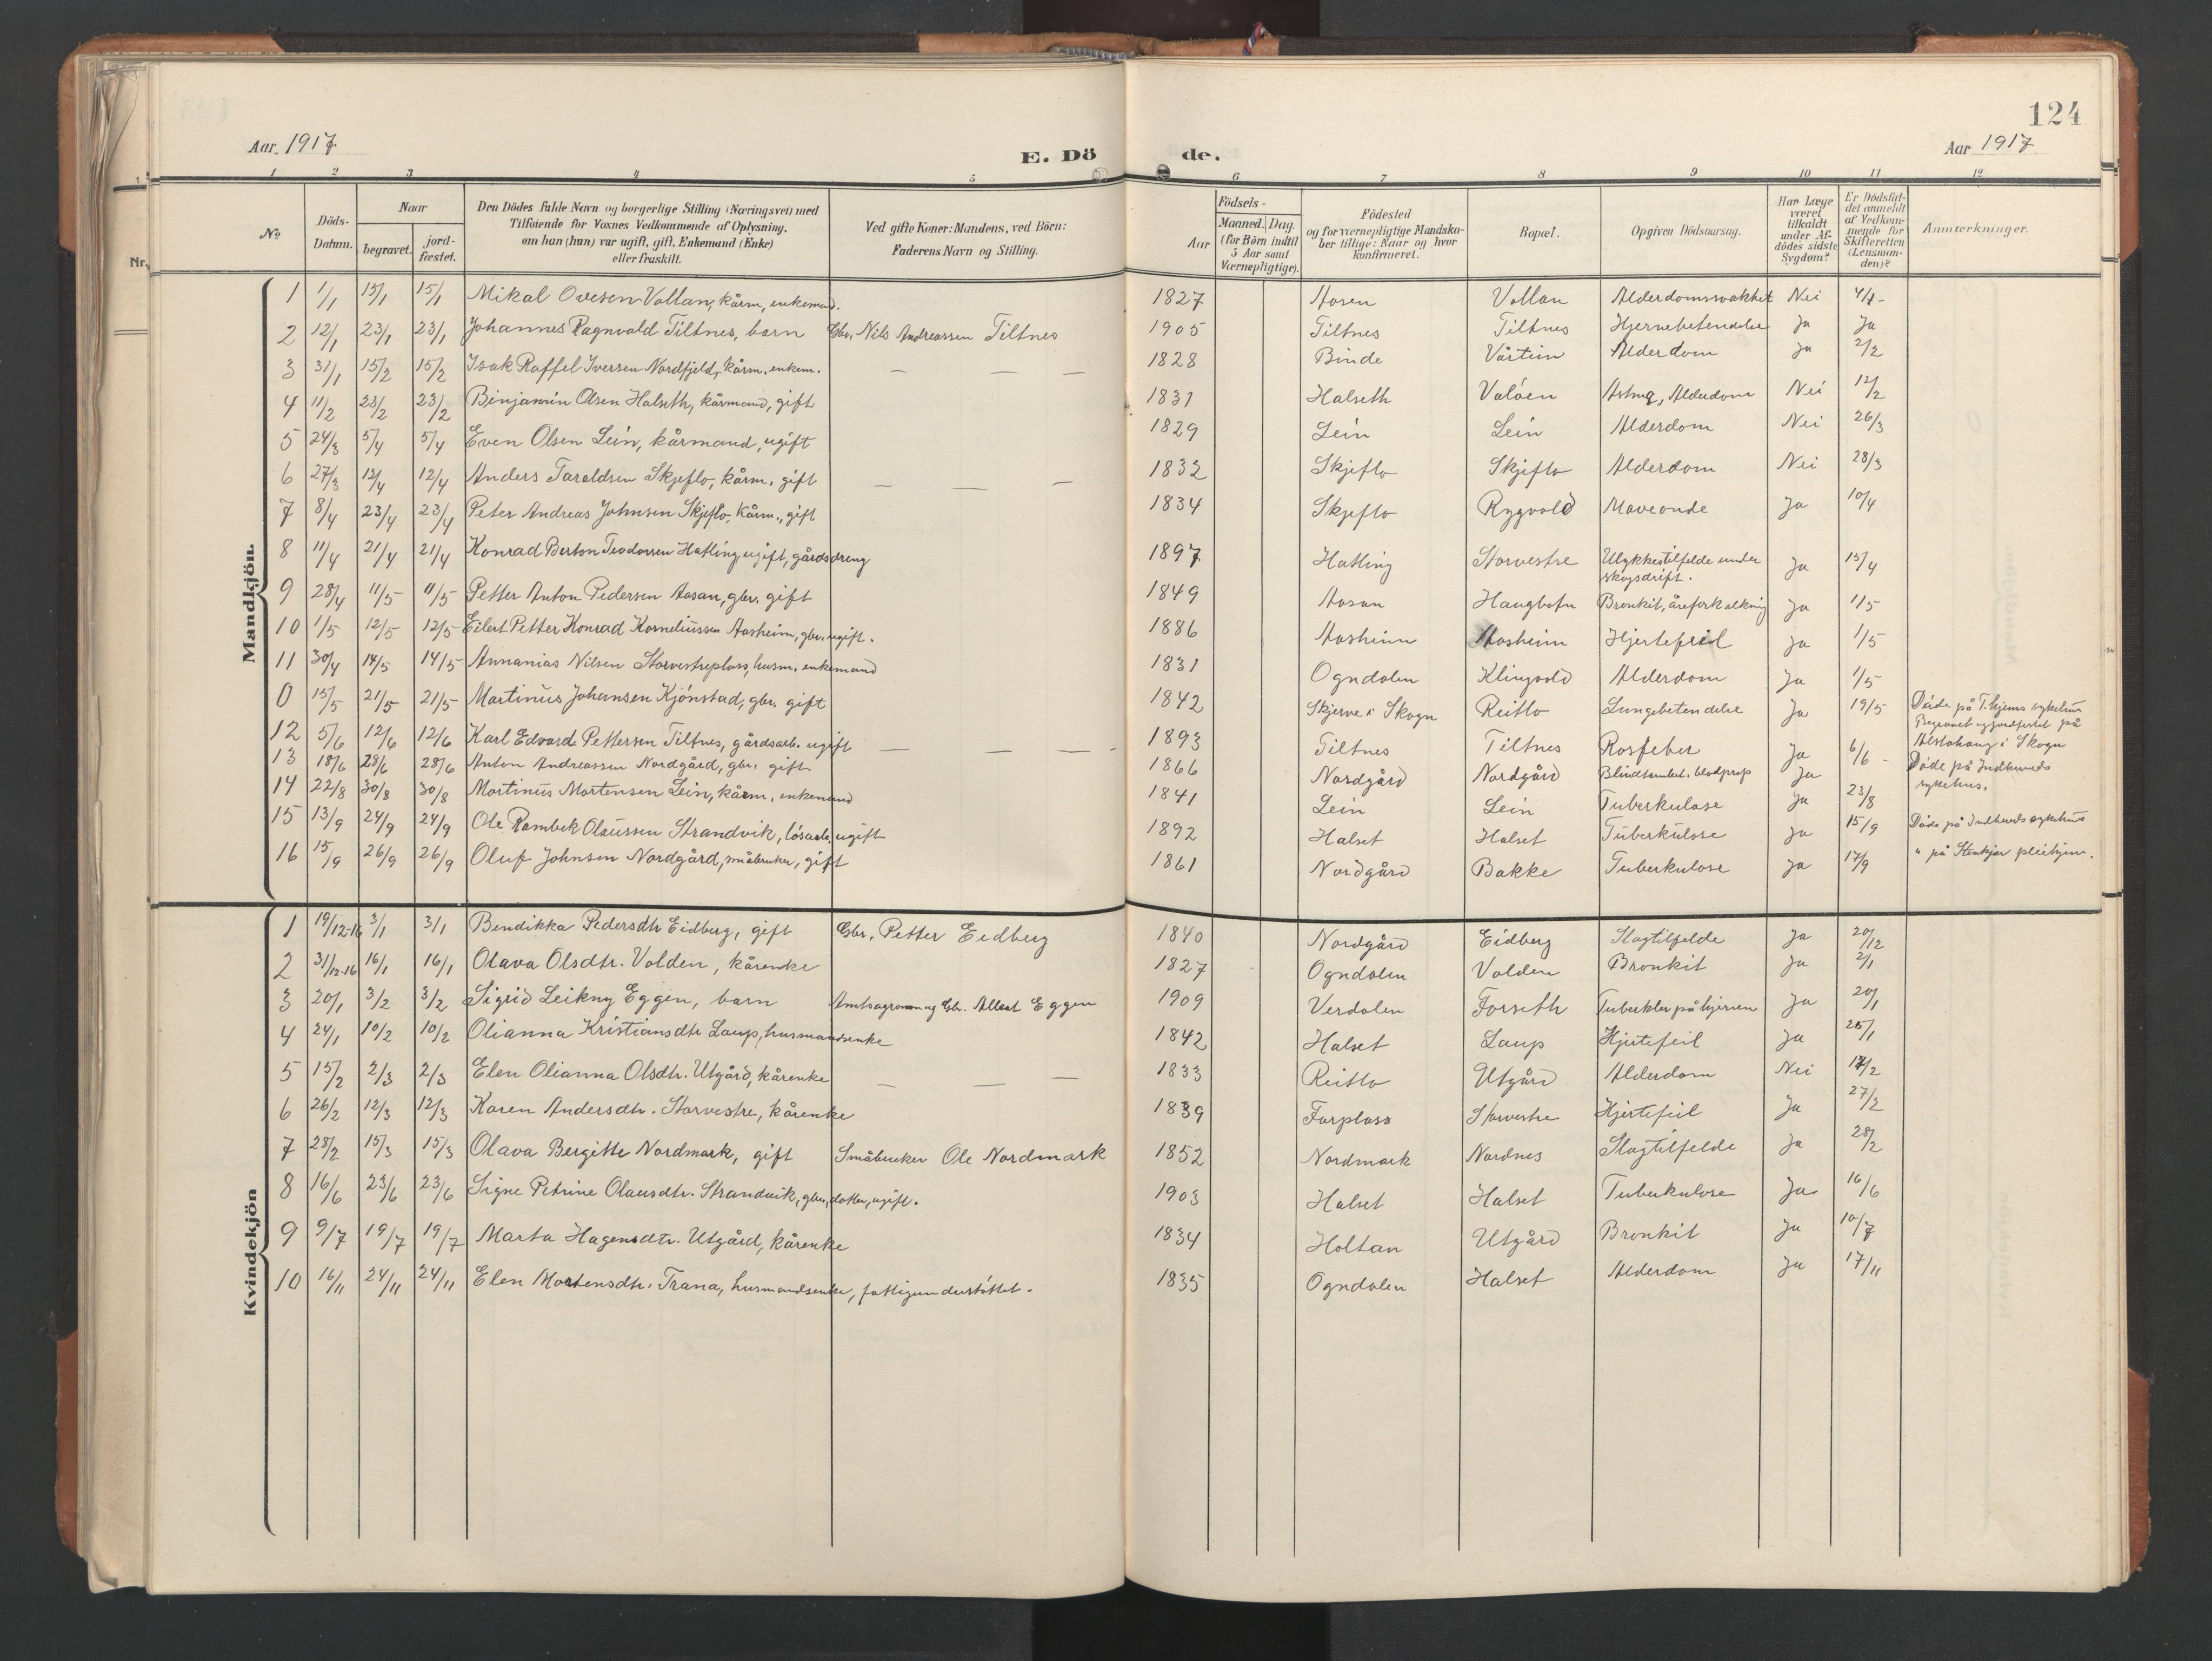 124
Aar 1917 E. Dö de. Aar 1917
1 2 3 4 5 6 7 8 9 10 11 12
No Döds-Datum. Naar begravet. jordfæstet. Den Dödes fulde Navn og borgerlige Stilling (Næringsvei) med Tilföiende for Voxnes Vedkommende af Oplysning, om han (hun) var ugift, gift, Enkemand (Enke) eller fraskilt. Ved gifte Koner: Mandens, ved Börn: Faderens Navn og Stilling. Födsels- Aar Maaned. Dag. (for Börn indtil 5 Aar samt Værnepligtige). Födested og for værnepligtige Mandskaber tillige: Naar og hvor konfirmeret. Bopæl. Opgiven Dödsaarsag. Har Læge været tilkaldt under Afdödes sidste Sygdom? Er Dödsfaldet anmeldt af Vedkommende for Skifteretten (Lensmanden)? Anmærkninger.
Nr.
Mandkjön.
1 1/1 15/1 15/1 Mikal Ovesen Vollan, kårm, enkemand. 1827 Aasen Vollan Alderdomssvakhet Nei 4/1 -
2 12/1 23/1 23/1 Johannes Ragnvald Tiltnes, barn Gbr. Nils Andreassen Tiltnes 1905 Tiltnes Tiltnes Hjernebetendelse Ja Ja
3 31/1 15/2 15/2 Isak Raffel Iversen Nordfjeld, kårm. enkem. — — — 1828 Binde Vårtun Alderdom Ja 2/2
4 11/2 23/2 23/2 Binjamin Olsen Halseth, kårmand, gift 1831 Halseth Valöen Astma, Alderdom Nei 12/2
5 24/3 5/4 5/4 Even Olsen Lein, kårmand, ugift 1829 Lein Lein Alderdom Nei 26/3
6 27/3 12/4 12/4 Anders Taraldsen Skjeflo, kårm. gift — — — 1832 Skjeflo Skjeflo Alderdom Nei 28/3
7 8/4 23/4 23/4 Peter Andreas Johnsen Skjeflo, Kårm., gift 1834 Skjeflo Rygvold Maveonde Ja 10/4
8 11/4 21/4 21/4 Konrad Berton Teodorsen Hatling ugift, gårdsdreng 1897 Hatling Storvestre Ulykkestilfelde under skogsdrift. Ja 15/4
9 28/4 11/5 11/5 Petter Anton Pedersen Aasan, gbr. gift 1849 Aasan Haugbotn Bronkit, åreforkalkning Ja 1/5
10 1/5 12/5 12/5 Eilert Petter Konrad Korneliussen Aasheim, gbr. ugift. 1886 Aasheim Aasheim Hjertefeil Ja 1/5
11 30/4 14/5 14/5 Annanias Nilsen Storvestreplass, husm. enkemand 1831 Ogndalen Klingvold Alderdom Ja 1/5
0 15/5 21/5 21/5 Martinus Johansen Kjönstad, gbr. gift 1842 Skjerve i Skogn Reitlo Lungebetendelse Ja 19/5 Döde på T.hjems sykehus Begravet og jordfestet på Alstahaug i Skogn
12 5/6 12/6 12/6 Karl Edvard Pettersen Tiltnes, gårdsarb. ugift — — — - 1893 Tiltnes Tiltnes Rosfeber Ja 6/6 -
13 18/6 28/6 28/6 Anton Andreassen Nordgård, gbr. gift 1866 Nordgård Nordgård Blindtarmbet. blodprop Ja Döde på Indherreds sykehus.
14 22/8 30/8 30/8 Martinus Mortensen Lein, kårm. enkemand 1841 Lein Lein Tuberkulose Ja 23/8
15 13/9 24/9 24/9 Ole Rambek Olaussen Strandvik, lösarb. ugift 1892 Halset Halset Tuberkulose Ja 15/9 Döde på Indherreds sykehus
16 15/9 26/9 26/9 Oluf Johnsen Nordgård, småbruker, gift 1861 Nordgård Bakke Tuberkulose Ja 17/9 " på Stenkjær pleiehjem.
Kvindekjön
1 19/12-16 3/1 3/1 Bendikka Pedersdtr Eidberg, gift Gbr. Petter Eidberg 1840 Nordgård Eidberg Slagtilfelde Ja 20/12
2 31/12-16 16/1 16/1 Olava Olsdtr. Volden, kårenke 1827 Ogndalen Volden Bronkit Ja 2/1
3 20/1 3/2 3/2 Sigrid Leikny Eggen, barn Amtsagronom og Gbr. Albert Eggen 1909 Verdalen Forseth Tuberkler på hjernen Ja 20/1
4 24/1 10/2 10/2 Olianna Kristiansdtr Laup, husmandsenke 1842 Halset Laup Hjertefeil Ja 25/1
5 15/2 2/3 2/3 Elen Olianna Olsdtr. Utgård, kårenke — — — 1833 Reitlo Utgård Alderdom Nei 17/2
6 26/2 12/3 12/3 Karen Andersdtr. Storvestre, kårenke 1839 Farplass Storvestre Hjertefeil Ja 27/2
7 28/2 15/3 15/3 Olava Bergitte Nordmark, gift Småbruker Ole Nordmark 1852 Nordmark Nordnes Slagtilfelde Ja 28/2
8 16/6 23/6 23/6 Signe Petrine Olausdtr. Strandvik, gbr. datter, ugift. 1903 Halset Halset Tuberkulose Ja 16/6
9 9/7 19/7 19/7 Marta Hagensdtr. Utgård, kårenke 1834 Holtan Utgård Bronkit Ja 10/7
10 16/11 24/11 24/11 Elen Mortensdtr. Trana, husmandsenke, fattigunderstöttet. 1835 Ogndalen Halset Alderdom Ja 17/11